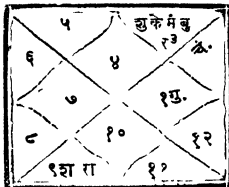 ५
शु के मं बु
र ३
६
४
७
१ गु.
८
१०
१२
९ श रा
११